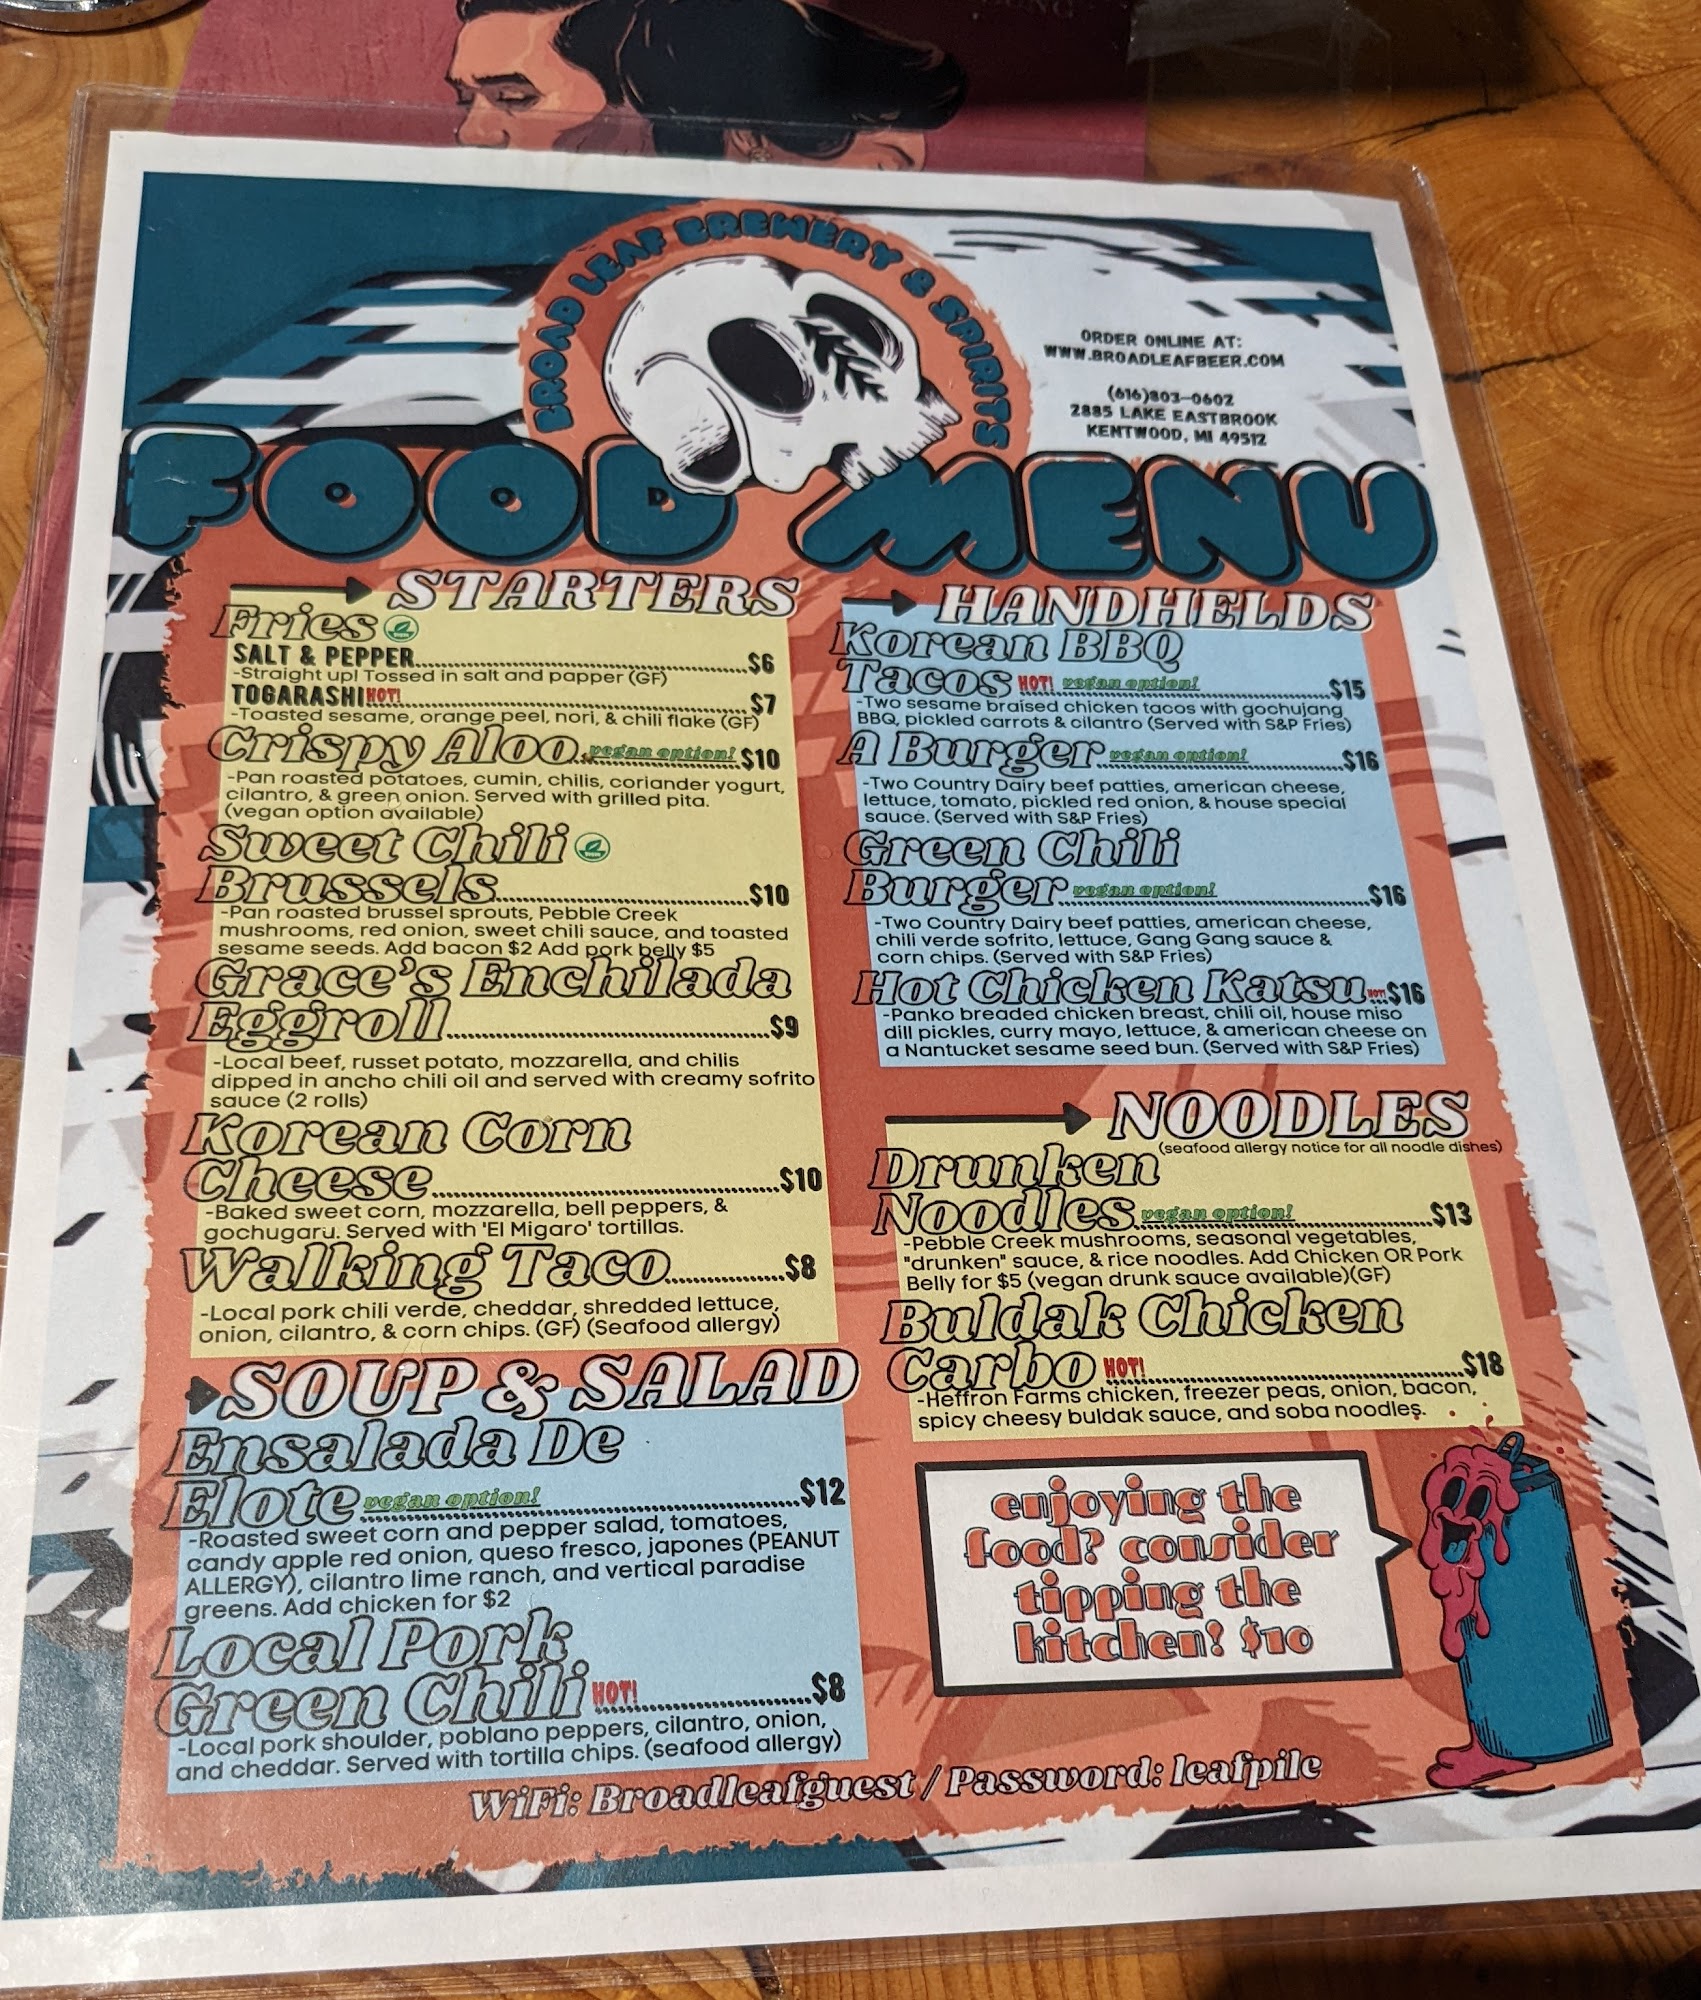 BROAD LEAF BREWERY & SPIRITS
ORDER ONLINE AT:
WWW.BROADLEAFBEER.COM
(616)803-0602
2885 LAKE EASTBROOK
KENTWOOD, MI 49512
FOOD MENU
STARTERS
Fries
SALT & PEPPER $6
-Straight up! Tossed in salt and papper (GF)
TOGARASHI HOT! $7
-Toasted sesame, orange peel, nori, & chili flake (GF)
Crispy Aloo vegan option! $10
-Pan roasted potatoes, cumin, chilis, coriander yogurt,
cilantro, & green onion. Served with grilled pita.
(vegan option available)
Sweet Chili
Brussels $10
-Pan roasted brussel sprouts, Pebble Creek
mushrooms, red onion, sweet chili sauce, and toasted
sesame seeds. Add bacon $2 Add pork belly $5
Grace's Enchilada
Eggroll $9
-Local beef, russet potato, mozzarella, and chilis
dipped in ancho chili oil and served with creamy sofrito
sauce (2 rolls)
Korean Corn
Cheese $10
-Baked sweet corn, mozzarella, bell peppers, &
gochugaru. Served with 'El Migaro' tortillas.
Walking Taco $8
-Local pork chili verde, cheddar, shredded lettuce,
onion, cilantro, & corn chips. (GF) (Seafood allergy)
SOUP & SALAD
Ensalada De
Elote vegan option! $12
-Roasted sweet corn and pepper salad, tomatoes,
candy apple red onion, queso fresco, japones (PEANUT
ALLERGY), cilantro lime ranch, and vertical paradise
greens. Add chicken for $2
Local Pork
Green Chili HOT! $8
-Local pork shoulder, poblano peppers, cilantro, onion,
and cheddar. Served with tortilla chips. (seafood allergy)
HANDHELDS
Korean BBQ
Tacos HOT! vegan option! $15
-Two sesame braised chicken tacos with gochujang
BBQ, pickled carrots & cilantro (Served with S&P Fries)
A Burger vegan option! $16
-Two Country Dairy beef patties, american cheese,
lettuce, tomato, pickled red onion, & house special
sauce. (Served with S&P Fries)
Green Chili
Burger vegan option! $16
-Two Country Dairy beef patties, american cheese,
chili verde sofrito, lettuce, Gang Gang sauce &
corn chips. (Served with S&P Fries)
Hot Chicken Katsu HOT! $16
-Panko breaded chicken breast, chili oil, house miso
dill pickles, curry mayo, lettuce, & american cheese on
a Nantucket sesame seed bun. (Served with S&P Fries)
NOODLES
(seafood allergy notice for all noodle dishes)
Drunken
Noodles vegan option! $13
-Pebble Creek mushrooms, seasonal vegetables,
"drunken" sauce, & rice noodles. Add Chicken OR Pork
Belly for $5 (vegan drunk sauce available)(GF)
Buldak Chicken
Carbo HOT! $18
-Heffron Farms chicken, freezer peas, onion, bacon,
spicy cheesy buldak sauce, and soba noodles.
enjoying the
food? consider
tipping the
kitchen! $10
WiFi: Broadleafguest / Password: leafpile